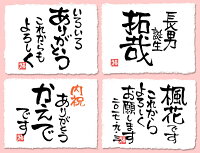 いろいろ
ありがとう
これからも
よろしく
長男
誕生
拓哉
内祝
ありがとう
かえで
です
楓花です
これから
よろしく
お願します